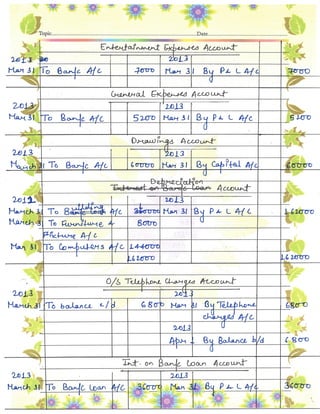 Topic Date
Entertainment Expenses Account
2013 2013
Mar 31 To Bank A/c 7000 Mar 31 By P & L A/c 7000
General Expenses Account
2013 2013
Mar 31 To Bank A/c 5200 Mar 31 By P & L A/c 5200
Drawings Account
2013 2013
March 31 To Bank A/c 60000 Mar 31 By Capital A/c 60000
Depreciation
Interest on Bank Loan Account
2013
March 31 To Building A/c Mar 31 By P & L A/c
March 31 To Furniture & 8000
Fixture A/c
Mar 31 To Computers A/c 144000
162000 162000
O/S Telephone Charges Account
2013 2013
March 31 To balance c/d 6800 Mar 31 By Telephone 6800
charges A/c
2013
Apr 1 By Balance b/d 6800
Int. on Bank Loan Account
2013 2013
March 31 To Bank Loan A/c 36000 Mar 31 By P & L A/c 36000